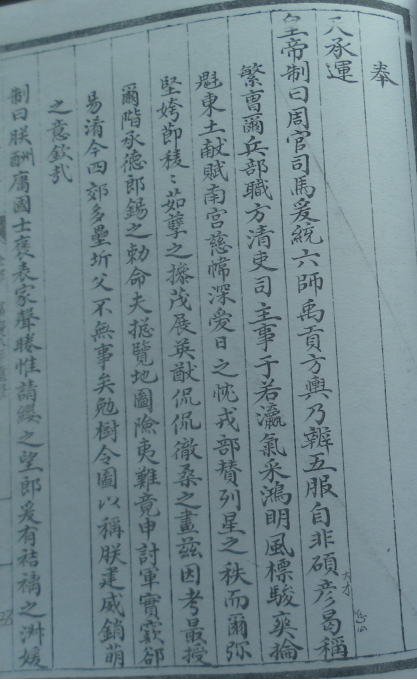 奉
天承運
皇帝制曰周官司馬爰統六師禹貢方輿乃辨五服自非碩彦曷稱
繁曺爾兵部職方清吏司主事于若瀛氣采鴻明風標駿爽掄
魁東土献賦南宫慈幃深愛日之忱戎部賛列星之秩而爾弥
堅姱節稜〻茹孽之操茂展英猷侃侃徹桑之畫兹因考最授
爾階承德郎錫之勅命夫揽覽地圖險夷難竟申討軍實窾郤
易淆今四郊多壘圻父不無事矣勉樹令圖以稱朕建威銷萌
之意欽㢤
制曰朕酬庸國士褒表家聲睠惟請纓之望郎爰有结褵之淋媛